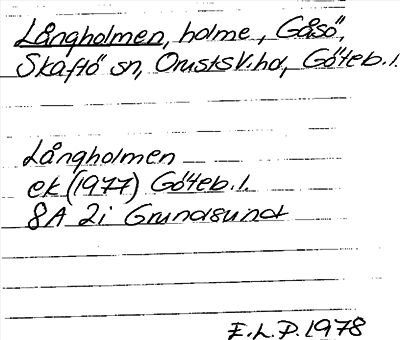 Långholmen, holme, Gåsö,
Skaftö sn, Orusts V. hd, Göteb. l.
Långholmen
ek (1977) Göteb. l.
8A 2i Grundsund
E.L.P. 1978